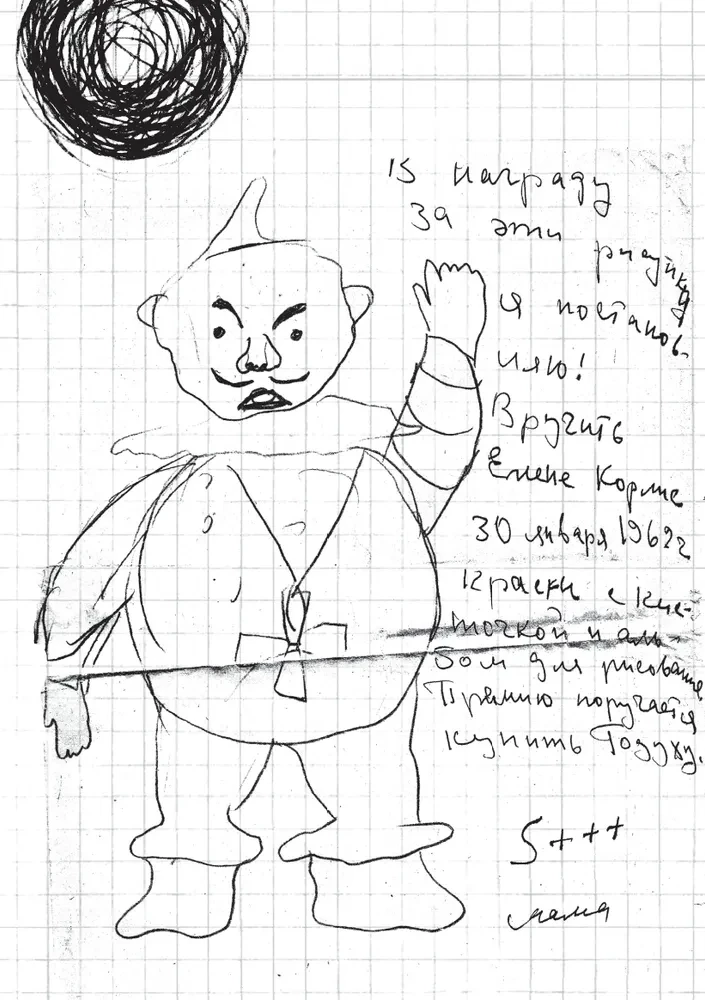 В награду
за эти рисунки
я постанов-
ляю!
Вручить
Елене Корме
30 января 1962 г
краски с кис-
точкой и аль-
бом для рисования
Премию поручается
купить
5+++
мама